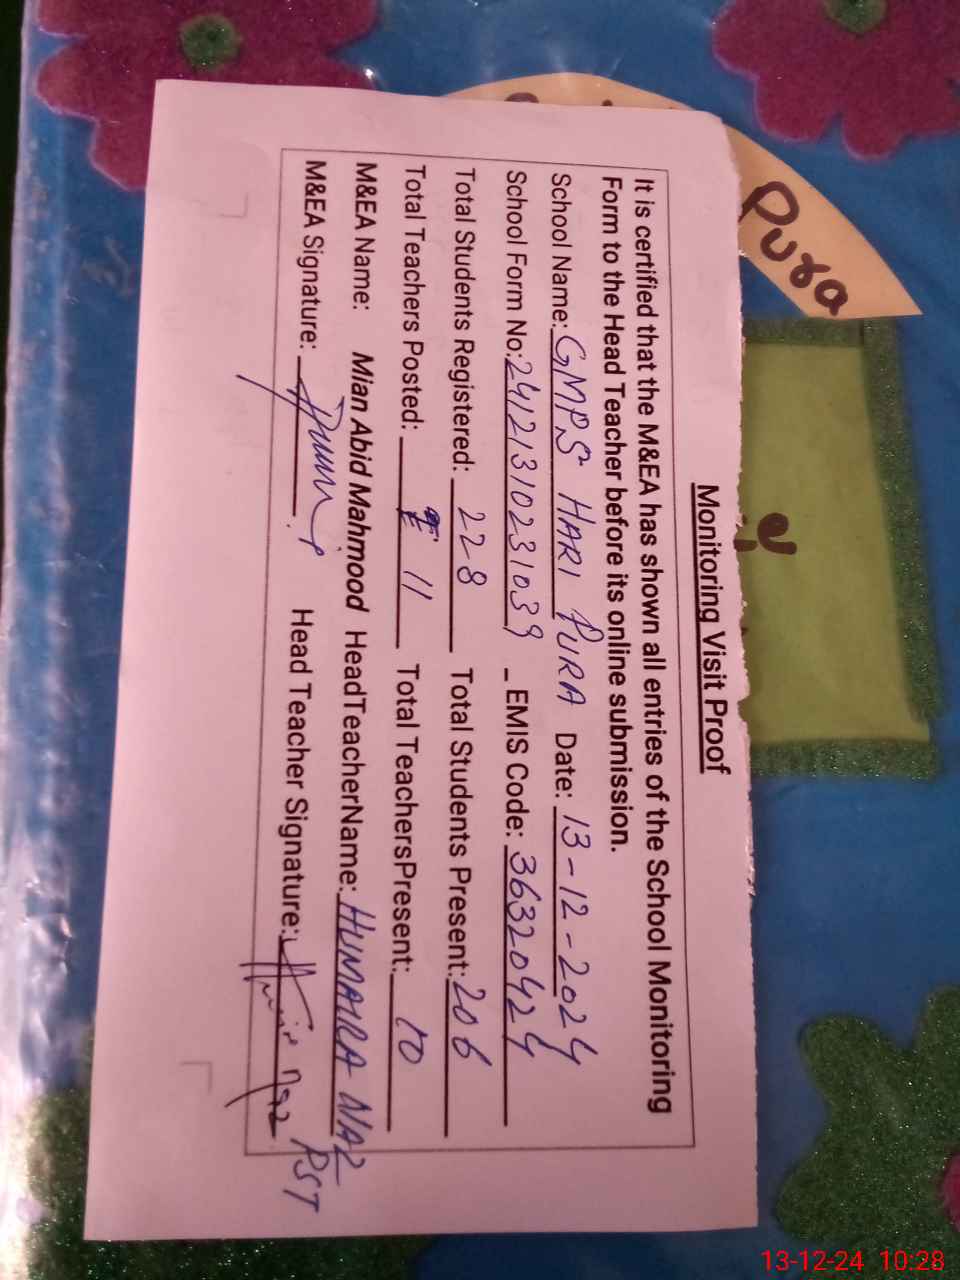 Monitoring Visit Proof
It is certified that the M&EA has shown all entries of the School Monitoring
Form to the Head Teacher before its online submission.
School Name: GMPS HARI PURA Date: 13-12-2024
School Form No: 24121310231039 EMIS Code: 36320424
Total Students Registered: 228 Total Students Present: 206
Total Teachers Posted: 11 Total TeachersPresent: 10
M&EA Name: Mian Abid Mahmood HeadTeacherName: HUMAIRA NAZ
M&EA Signature: Head Teacher Signature: PST
Pura
13-12-24 10:28